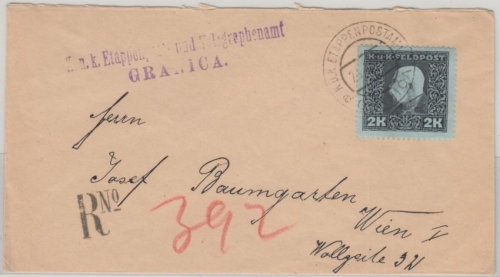 K.u.k. Etappenpost- und Telegraphenamt
GRANICA.
K.U.K. ETAPPENPOSTAM
K.u.K. FELDPOST
2K 2K
Herrn
Josef Baumgarten
Wien I
Wollzeile
R No
392